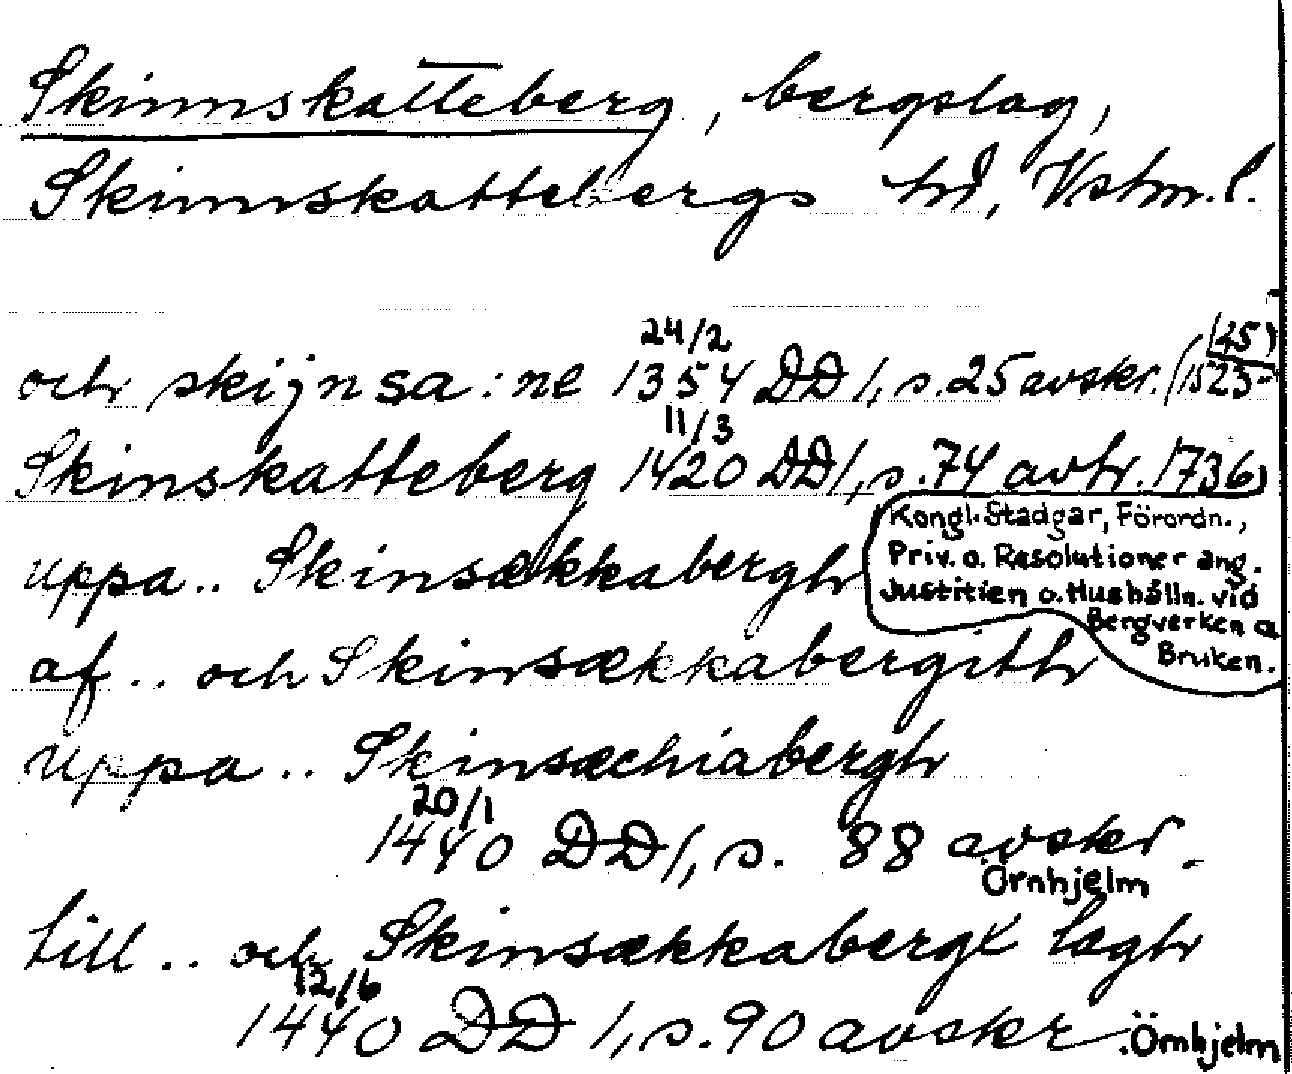 Skinnskatteberg, bergslag,
Skinnskattebergs hd, Vstm. l.
24/2 (45)
och skijnsa:ne 1354 DD 1, s. 25 avskr. (1523-
11/3
Skinskatteberg 1420 DD 1, s. 74 avtr. 1736)
Kongl. Stadgar, Förordn.,
Priv. o. Resolutioner ang.
Justitien o. Hushålln. vid
Bergverken o
Bruken.
uppa .. Skinsækkabergh
af .. och Skinsækkabergith
uppa .. Skinsæchiabergh
20/1
1440 DD 1, s. 88 avskr.
Örnhjelm
till .. och Skinsækkabergx lagh
12/6
1440 DD 1, s. 90 avskr. Örnhjelm